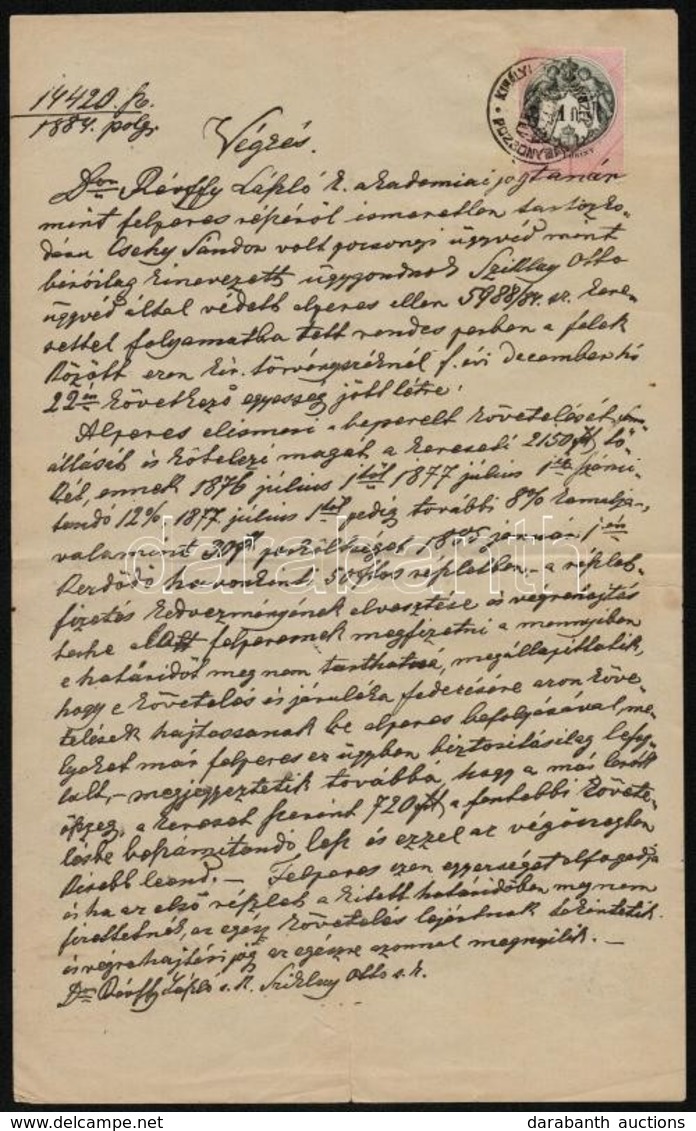 14420. sz.
1884. polg.
KIRÁLYI
POZSONY
1 Ft
Végzés.
Dor Révffy László k. akademiai jogtanár
mint felperes részéről ismeretlen tartózko-
dásu Cseky Sándor volt pozsonyi ügyvéd mint
biróilag kinevezett ügygondnok Sziklay Otto
ügyvéd által védett alperes ellen 5988/84. sz. kere-
settel folyamatba tett rendes perben a felek
között ezen kir. törvényszéknél f. évi december hó
22én következő egyesség jött létre:
Alperes elismeri a beperelt követelését
állását és kötelezi magát a kereseti 2150 ft tő-
két, ennek 1876 július 1től 1877 július 1ig számi-
tandó 12% 1877 július 1től pedig további 8% kamatja-,
valamint 30 ft perköltséget 1885 január 1én
kezdődő havonkinti 50 ftos részletben, – a részlet-
fizetés kedvezményének elvesztése és végrehajtás
terhe alatt felperesnek megfizetni a mennyiben
e határidőt meg nem tarthatná, megállapittatik,
hogy e követelés és járuléka fedezésére azon köve-
telések hajtassanak be alperes befolyásával, me-
lyeket már felperes ez ügyben biztositásilag lefog-
lalt, – megjegyeztetik továbbá, hogy a már lerótt
összeg, a kereset szerint 720 ft, a fentebbi követe-
lésbe beszámitandó lesz és ezzel az végösszegben
kisebb leend. – Felperes ezen egyességet elfogadja
és ha az első részlet a kitett határidőben meg nem
fizettetnék, az egész követelés lejártnak tekintetik
és végrehajtási jog az egészre azonnal megnyilik. –
Dor Révffy László s. k. Sziklay Otto s. k.
darabanth
www.darabanth.com
darabanth auctions